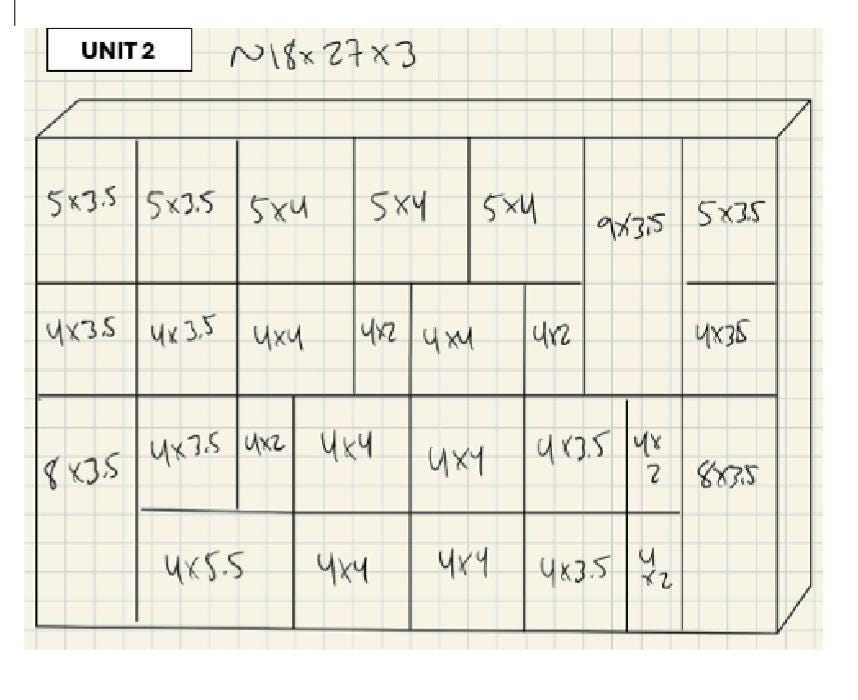 UNIT 2
~18x27x3
5x3.5 5x3.5 5x4 5x4 5x4 9x3.5 5x3.5
4x3.5 4x3.5 4x4 4x2 4x4 4x2 4x35
8x3.5 4x3.5 4x2 4x4 4x4 4x3.5 4x2 8x3.5
4x5.5 4x4 4x4 4x3.5 4x2